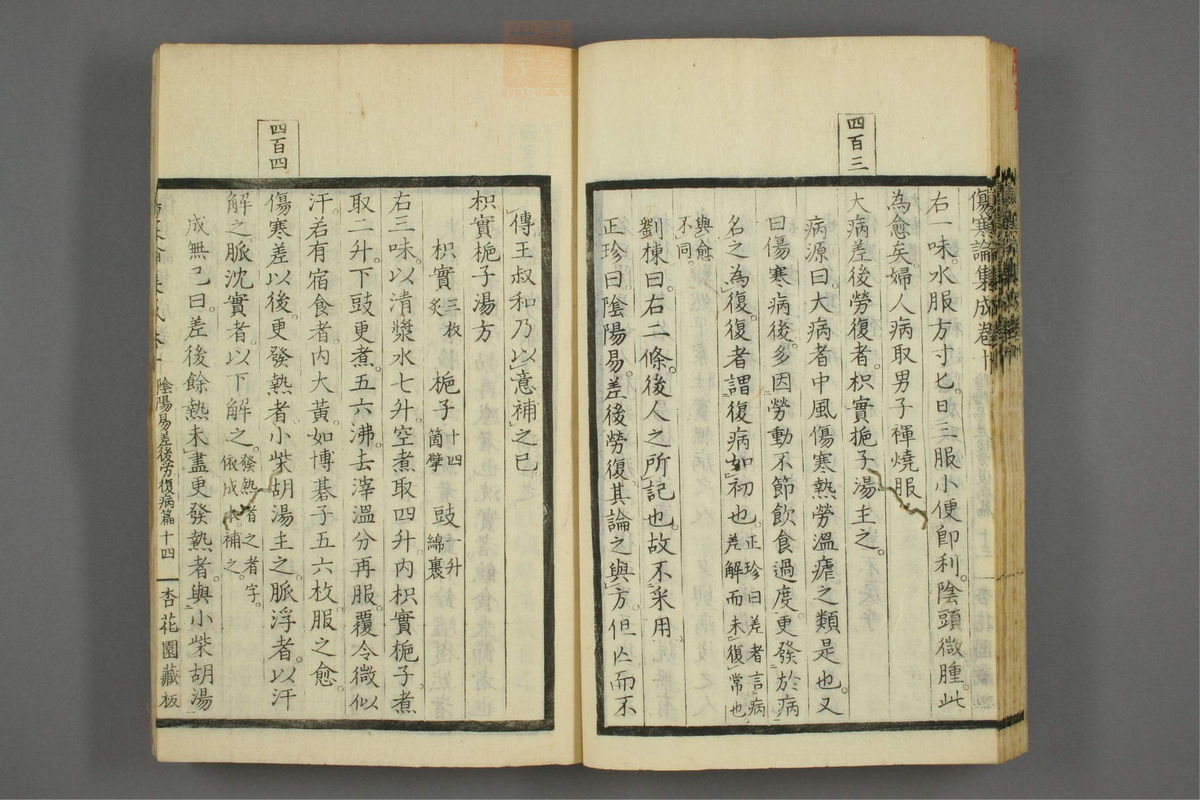 四百三
傷寒論集成卷十
右一味。水服方寸匕。日三服小便卽利。陰頭微腫。此
為愈矣。婦人病取男子褌燒服。
大病差後勞復者。枳實梔子湯主之。
病源曰。大病者中風傷寒熱勞溫瘧之類是也。又
曰傷寒病後。多因勞動不節飲食過度。更發於病
名之為復。復者謂復病如初也。正珍曰差者言病差解而未復常也
與愈不同。
劉棟曰。右二條。後人之所記也。故不采用。
正珍曰。陰陽易差後勞復。其論之與方。但亾而不
傳。王叔和乃以意補之已。
枳實梔子湯方
枳實三枚炙 梔子十四箇擘 豉一升綿裹
右三味。以清漿水七升。空煮取四升。內枳實梔子。煮
取二升。下豉更煮。五六沸。去滓溫分再服。覆令微似
汗。若有宿食者。內大黃。如博碁子五六枚。服之愈。
四百四
傷寒差以後。更發熱者。小柴胡湯主之。脈浮者。以汗
解之。脈沈實者。以下解之。發熱者之者字。依成本補之。
成無已曰。差後餘熱未盡更發熱者。與小柴胡湯
陰陽易差後勞復病篇 十四 杏花園藏板